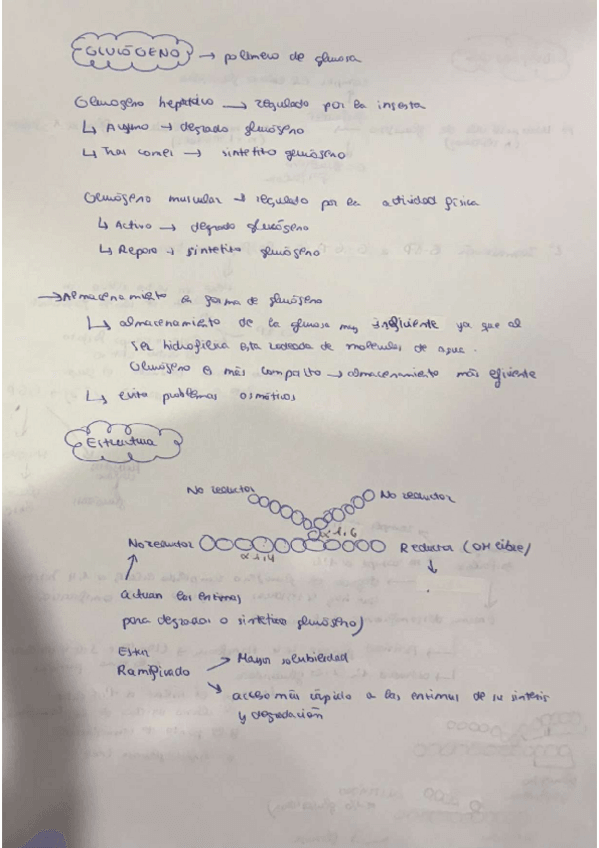 GLUCÓGENO → polímero de glucosa
Glucógeno hepático → regulado por la ingesta
↳ Ayuno → degrado glucógeno
↳ Tras comer → sintetizo glucógeno
Glucógeno muscular → regulado por la actividad física
↳ Activo → degrado glucógeno
↳ Reposo → sintetizo glucógeno
→ Almacenamiento en forma de glucógeno
↳ almacenamiento de la glucosa muy ineficiente ya que al
ser hidrofílica esta rodeada de moléculas de agua.
Glucógeno es más compacto → almacenamiento más eficiente
↳ evita problemas osmóticos
Estructura
No reductor No reductor
α-1,6
No reductor Reductor (OH libre)
α-1,4
actuan las enzimas
para degradar o sintetizar glucógeno)
Estar
Ramificado → Mayor solubilidad
→ acceso más rápido a las enzimas de su síntesis
y degradación